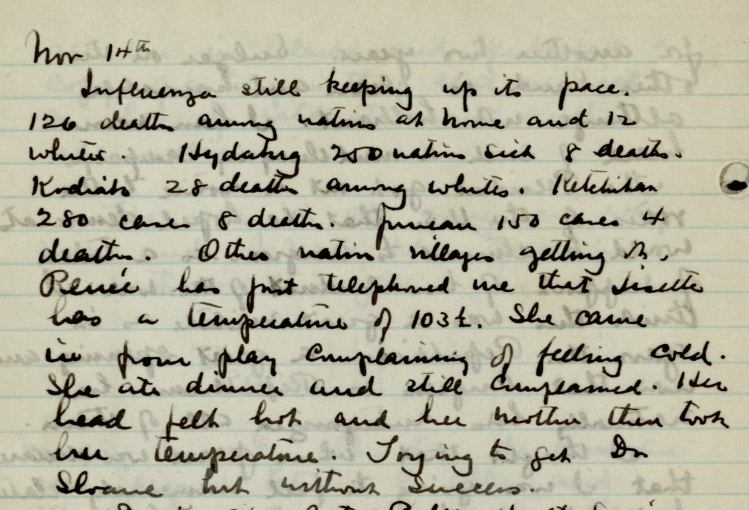 Nov 14th
Influenza still keeping up its pace.
126 deaths among natives at Nome and 12
whites. Hydaburg 250 natives sick 8 deaths.
Kodiak 28 deaths among whites. Ketchikan
280 cases 8 deaths. Juneau 150 cases 4
deaths. Other native villages getting it.
Renée has just telephoned me that Lisette
has a temperature of 103½. She came
in from play complaining of feeling cold.
She ate dinner and still complained. Her
head felt hot and her mother then took
her temperature. Trying to get Dr
Sloane but without success.